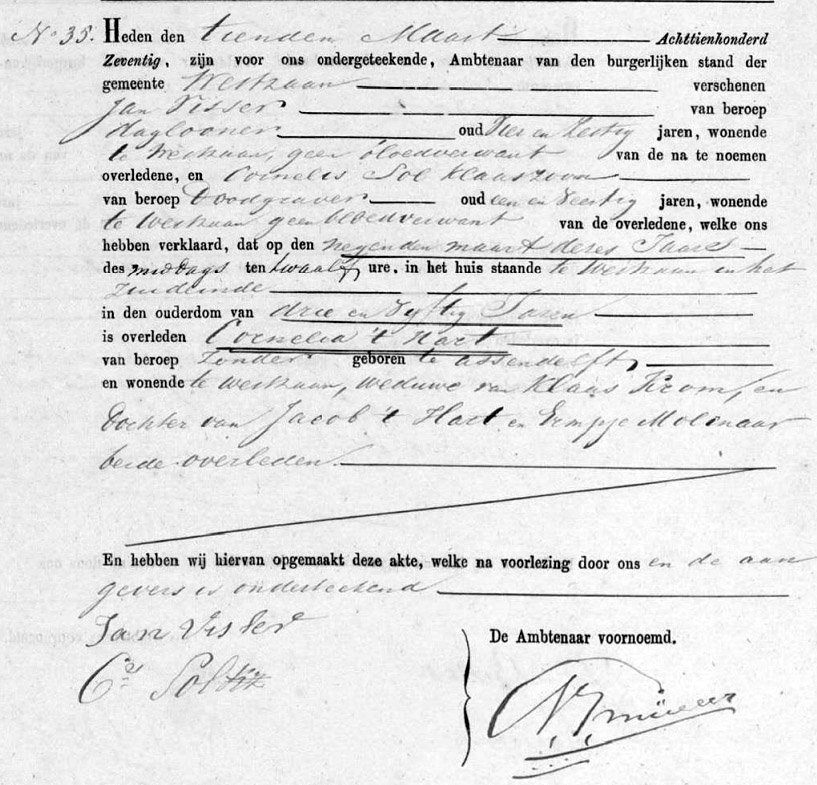 No 35. Heden den tienden Maart Achttienhonderd
Zeventig, zijn voor ons ondergeteekende, Ambtenaar van den burgerlijken stand der
gemeente Westzaan verschenen
Jan Visser van beroep
daglooner oud vier en Zestig jaren, wonende
te Westzaan, geen bloedverwant van de na te noemen
overledene, en Cornelis Sol Klaaszoon
van beroep Doodgraver oud een en Veertig jaren, wonende
te Westzaan geen bloedverwant van de overledene, welke ons
hebben verklaard, dat op den negenden maart dezes Jaars
des middags ten twaalf ure, in het huis staande te Westzaan in het
Zuideinde
in den ouderdom van drie en Vyftig Jaren
is overleden Cornelia 't Hart
van beroep Zonder geboren te assendelft,
en wonende te westzaan, weduwe van Klaas Krom, en
Dochter van Jacob 't Hart en Empje Molenaar
beide overleden.
En hebben wij hiervan opgemaakt deze akte, welke na voorlezing door ons en de aan
gevers is onderteekend
Jan Visser
Cs Sol Kz
De Ambtenaar voornoemd.